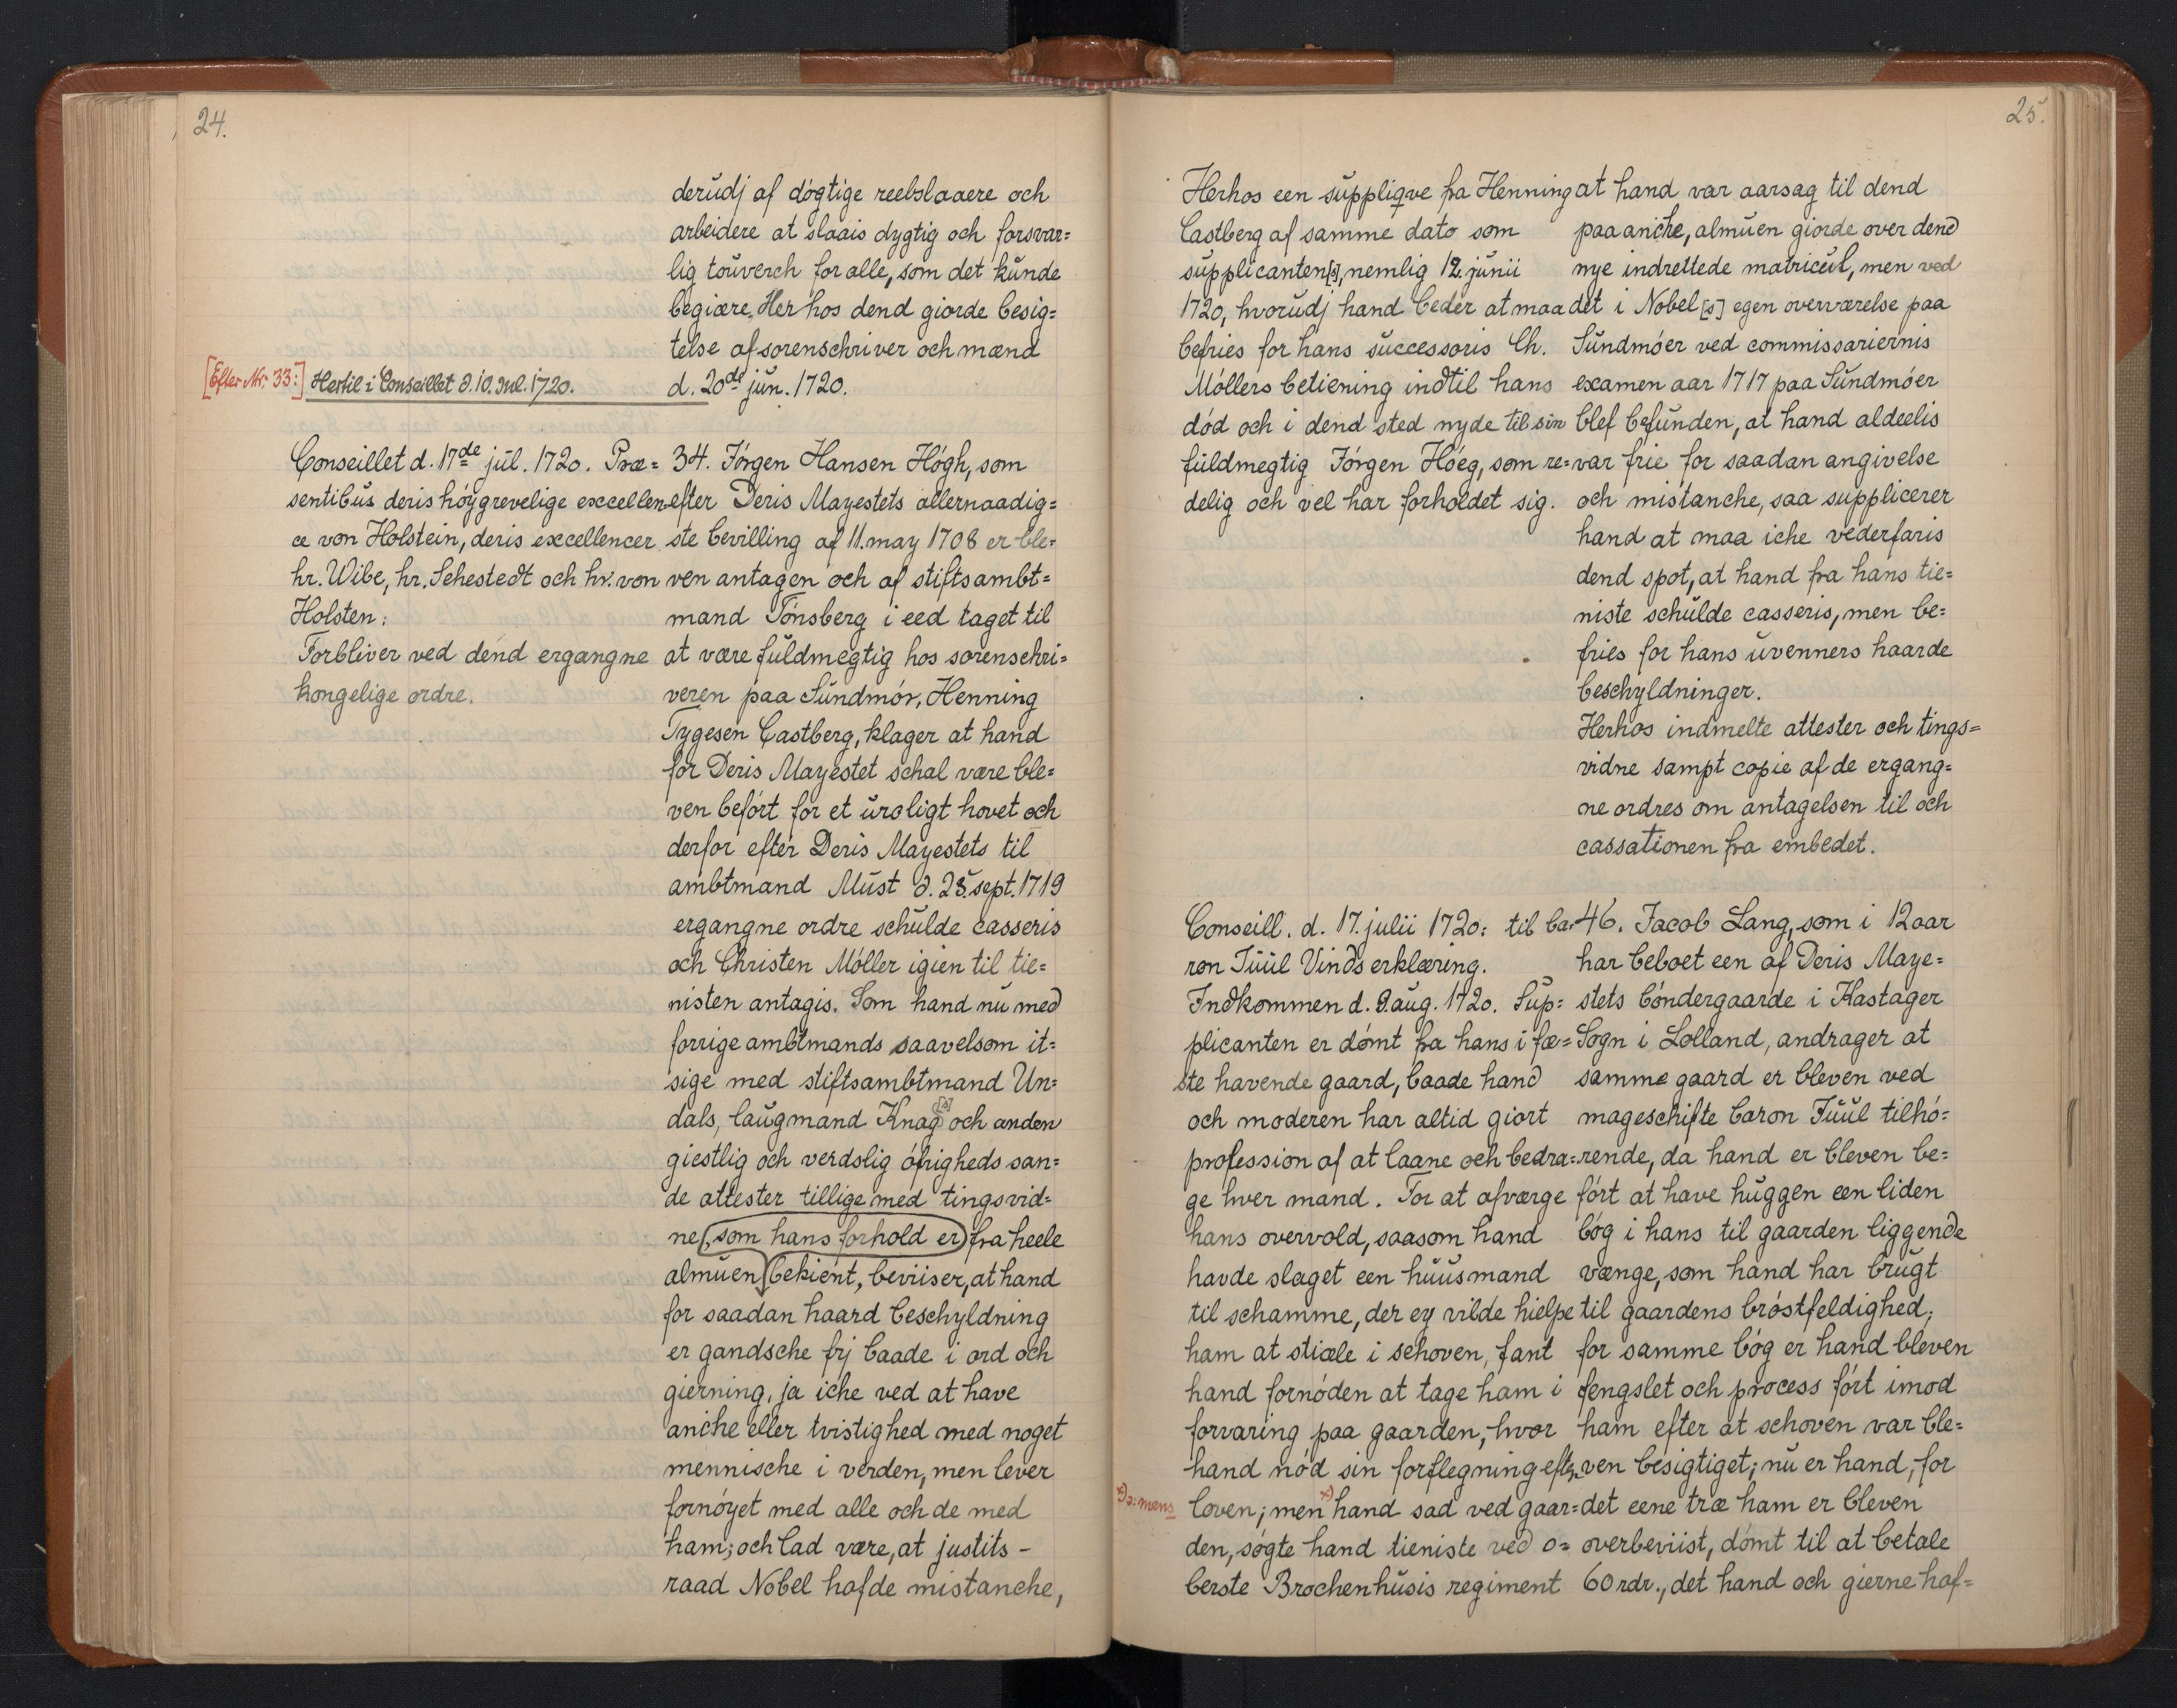 24.
derudj af dógtige reebslaaere och
arbeidere at slaais dygtig och forsvar=
lig touverch for alle, som det kunde
begiære. Her hos dend giorde besig=
telse af sorenschriver och mænd
d. 20de jun. 1720.
[Efter Nr. 33:] Hertil i Conseillet d. 10. Jul. 1720.
Conseillet d. 17de jul. 1720. Præ=
sentibus deris höygrevelige excellen-
ce von Holstein, deris excellencer
hr. Wibe, hr. Sehestedt och hr. von
Holsten:
Forbliver ved dend ergangne
kongelige ordre.
34. Jórgen Hansen Hógh, som
efter Deris Mayestets allernaadig=
ste bevilling af 11. may 1708 er ble=
ven antagen och af stiftsambt=
mand Tónsberg i eed taget til
at være fuldmegtig hos sorenschri=
veren paa Sundmór, Henning
Tygesen Castberg, klager at hand
for Deris Mayestet schal være ble=
ven befórt for et uroligt hovet och
derfor efter Deris Mayestets til
ambtmand Must d. 25. sept. 1719
ergangne ordre schulde casseris
och Christen Móller igien til tie=
nisten antagis. Som hand nu med
forrige ambtmands saavelsom it=
sige med stiftsambtmand Un=
dals, laugmand Knag[s] och anden
giestlig och verdslig ófrigheds san=
de attester tillige med tingsvid=
ne (, som hans forhold er) fra heele
almuen bekient, beviiser, at hand
for saadan haard beschyldning
er gandsche frj baade i ord och
gierning, ja iche ved at have
anche eller tvistighed med noget
mennische i verden, men lever
fornóyet med alle och de med
ham; och lad være, at justits-
raad Nobel hafde mistanche,
25.
Herhos een suppliqve fra Henning
Castberg af samme dato som
supplicanten[s], nemlig 12. junii
1720, hvorudj hand beder at maa
befries for hans successoris Ch.
Móllers betiening indtil hans
dód och i dend sted nyde til sin
fuldmegtig Jórgen Hóeg, som re=
delig och vel har forholdet sig.
at hand var aarsag til dend
paa anche, almuen giorde over dend
nye indrettede matricul, men ved
det i Nobel[s] egen overværelse paa
Sundmóer ved commissariernis
examen aar 1717 paa Sundmóer
blef befunden, at hand aldeelis
var frie for saadan angivelse
och mistanche, saa supplicerer
hand at maa iche vederfaris
dend spot, at hand fra hans tie=
niste schulde casseris, men be=
fries for hans uvenners haarde
beschyldninger.
Herhos indmelte attester och tings=
vidne sampt copie af de ergang=
ne ordres om antagelsen til och
cassationen fra embedet.
Conseill. d. 17. julii 1720: til ba=
ron Juul Vinds erklæring.
Indkommen d. 9. aug. 1720. Sup=
plicanten er dómt fra hans i fæ=
ste havende gaard, baade hand
och moderen har altid giort
profession af at laane och bedra=
ge hver mand. For at afværge
hans overvold, saasom hand
havde slaget een huusmand
til schamme, der ey vilde hielpe
ham at stiæle i schoven, fant
hand fornóden at tage ham i
forvaring paa gaarden, hvor
hand nód sin forflegning efter
*) ɔ: mens
loven; men *) hand sad ved gaar=
den, sógte hand tieniste ved o=
berste Brochenhusis regiment
46. Jacob Lang, som i 12 aar
har beboet een af Deris Maye=
stets bóndergaarde i Hastager
Sogn i Lolland, andrager at
samme gaard er bleven ved
mageschifte baron Juul tilhó=
rende, da hand er bleven be=
fórt at have huggen een liden
bóg i hans til gaarden liggende
vænge, som hand har brugt
til gaardens bróstfeldighed;
for samme bóg er hand bleven
fengslet och process fórt imod
ham efter at schoven var ble=
ven besigtiget; nu er hand, for
det eene træ ham er bleven
overbeviist, dómt til at betale
60 rdr., det hand och gierne haf=